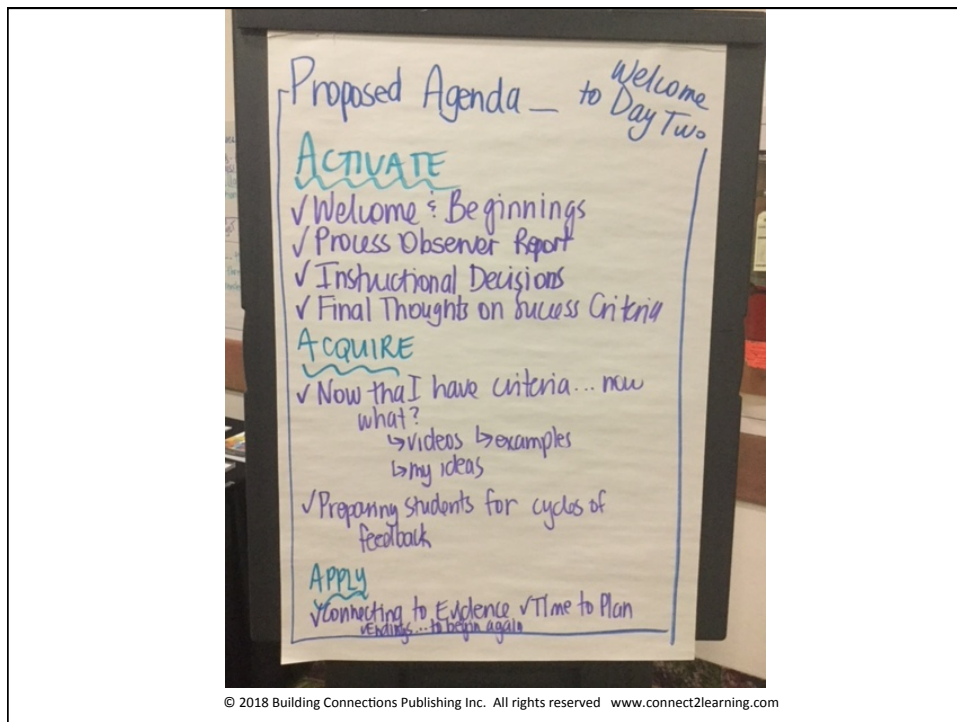 Proposed Agenda _
Welcome
to Day Two
ACTIVATE
✓ Welcome & Beginnings
✓ Process Observer Report
✓ Instructional Decisions
✓ Final Thoughts on Success Criteria
ACQUIRE
✓ Now tha I have criteria... now
what?
↳ videos ↳ examples
↳ my ideas
✓ Preparing students for cycles of
feedback
APPLY
✓ Connecting to Evidence ✓ Time to Plan
✓ Endings... to begin again
© 2018 Building Connections Publishing Inc. All rights reserved www.connect2learning.com